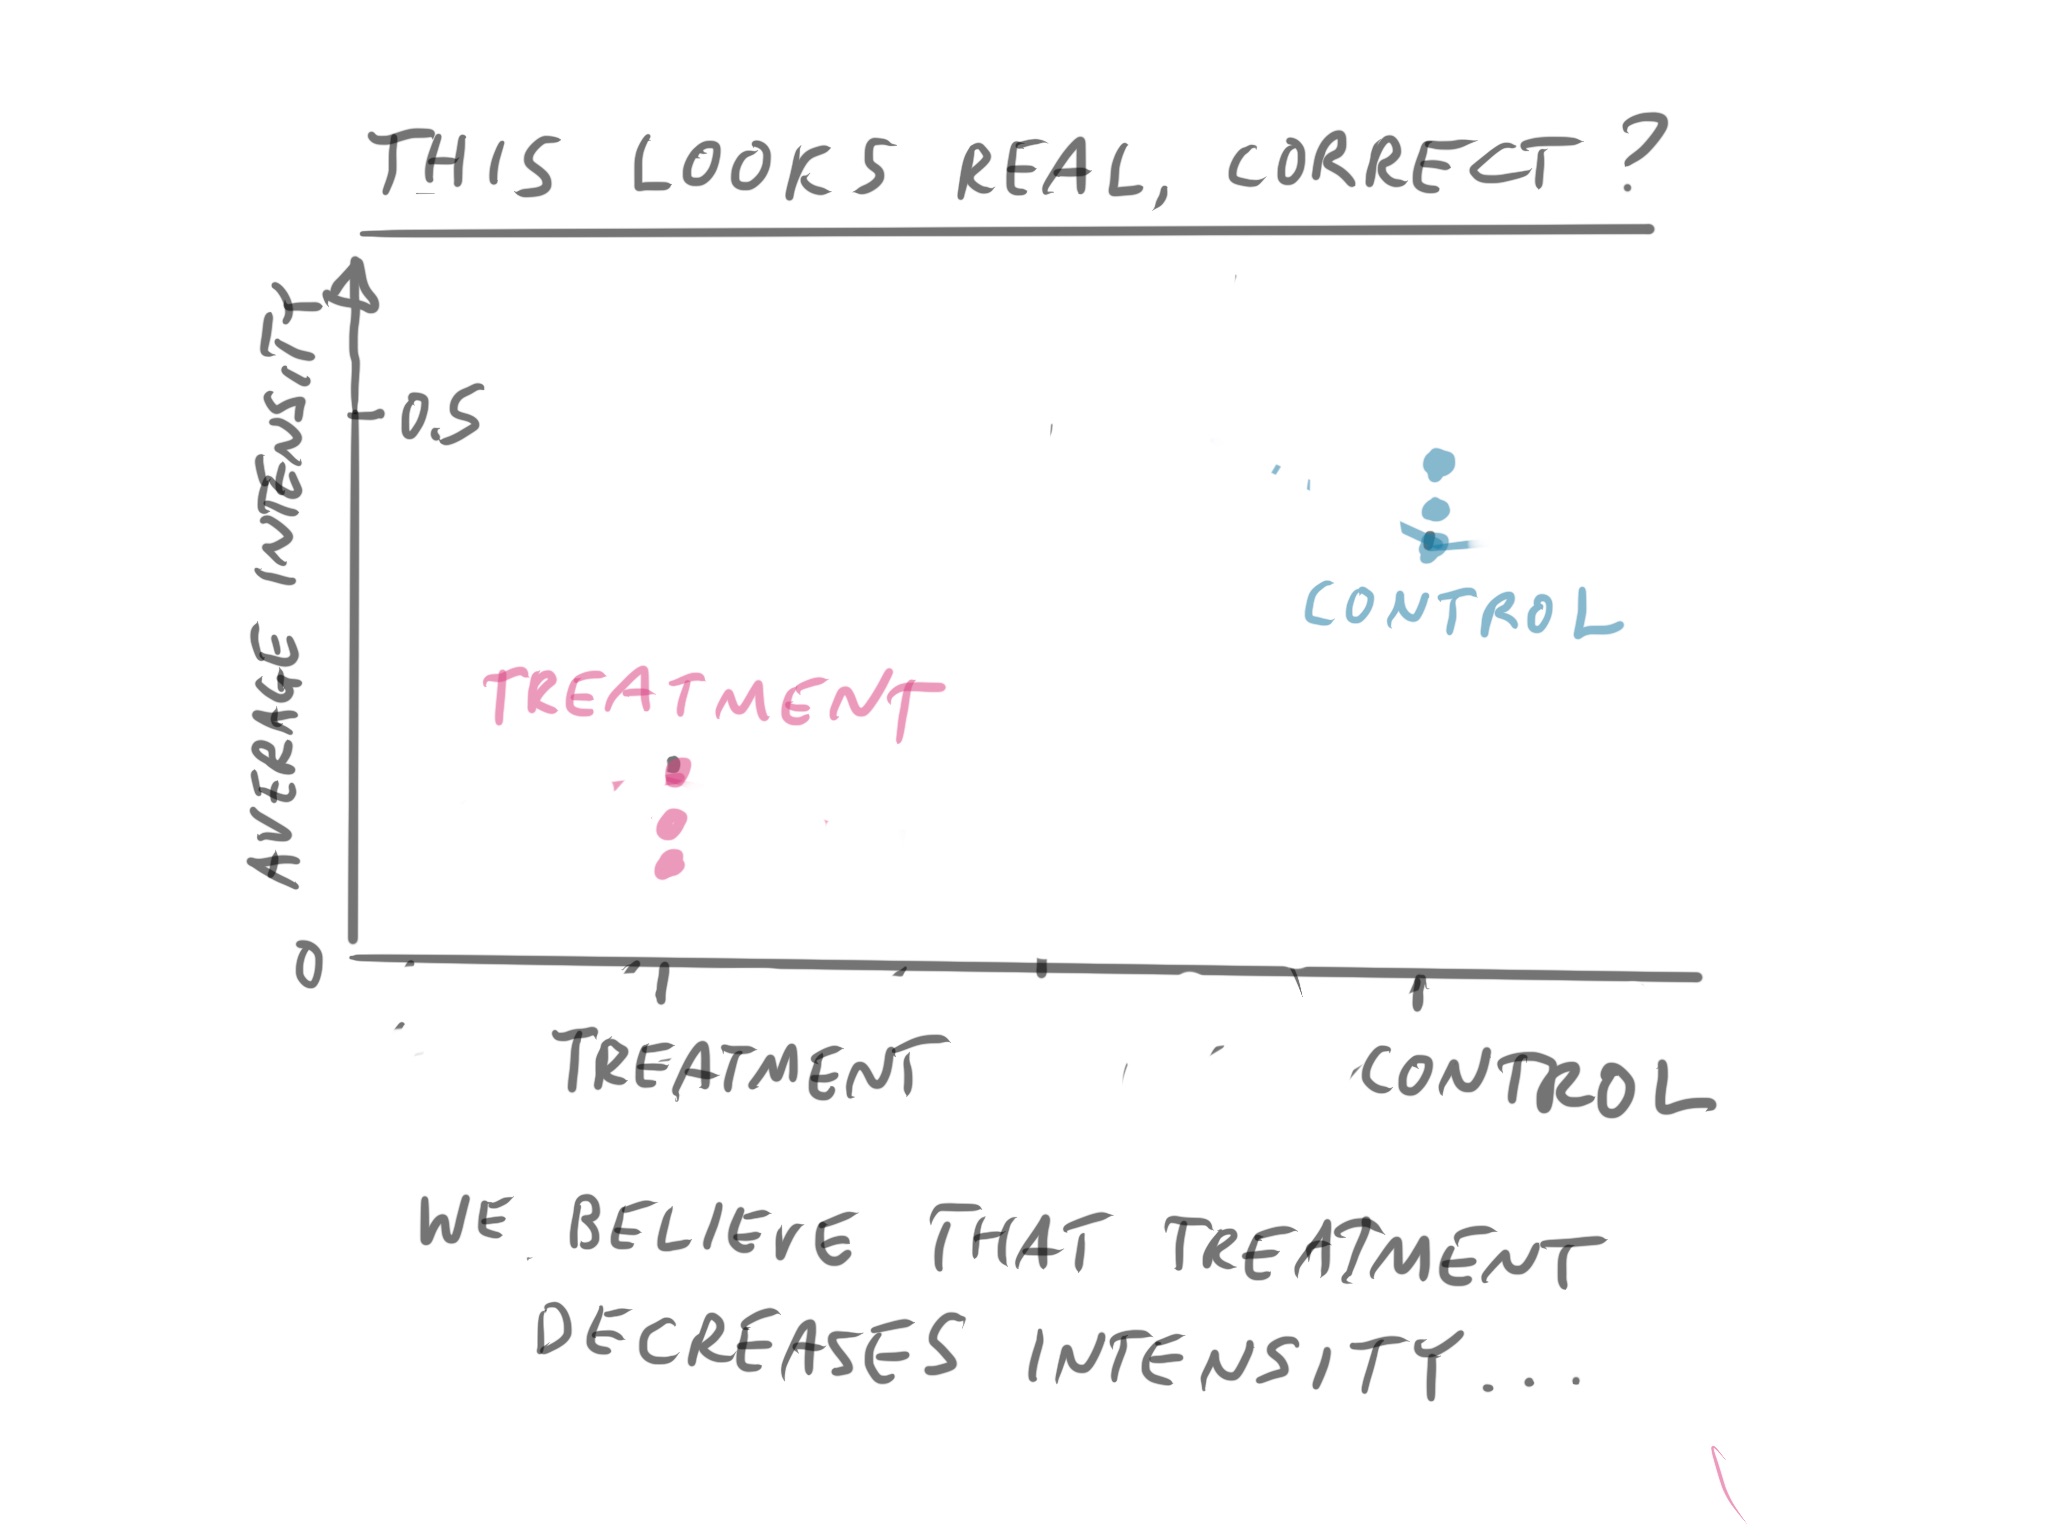 THIS LOOKS REAL, CORRECT?
AVERAGE INTENSITY
0.5
CONTROL
TREATMENT
0
TREATMENT
CONTROL
WE BELIEVE THAT TREATMENT
DECREASES INTENSITY...